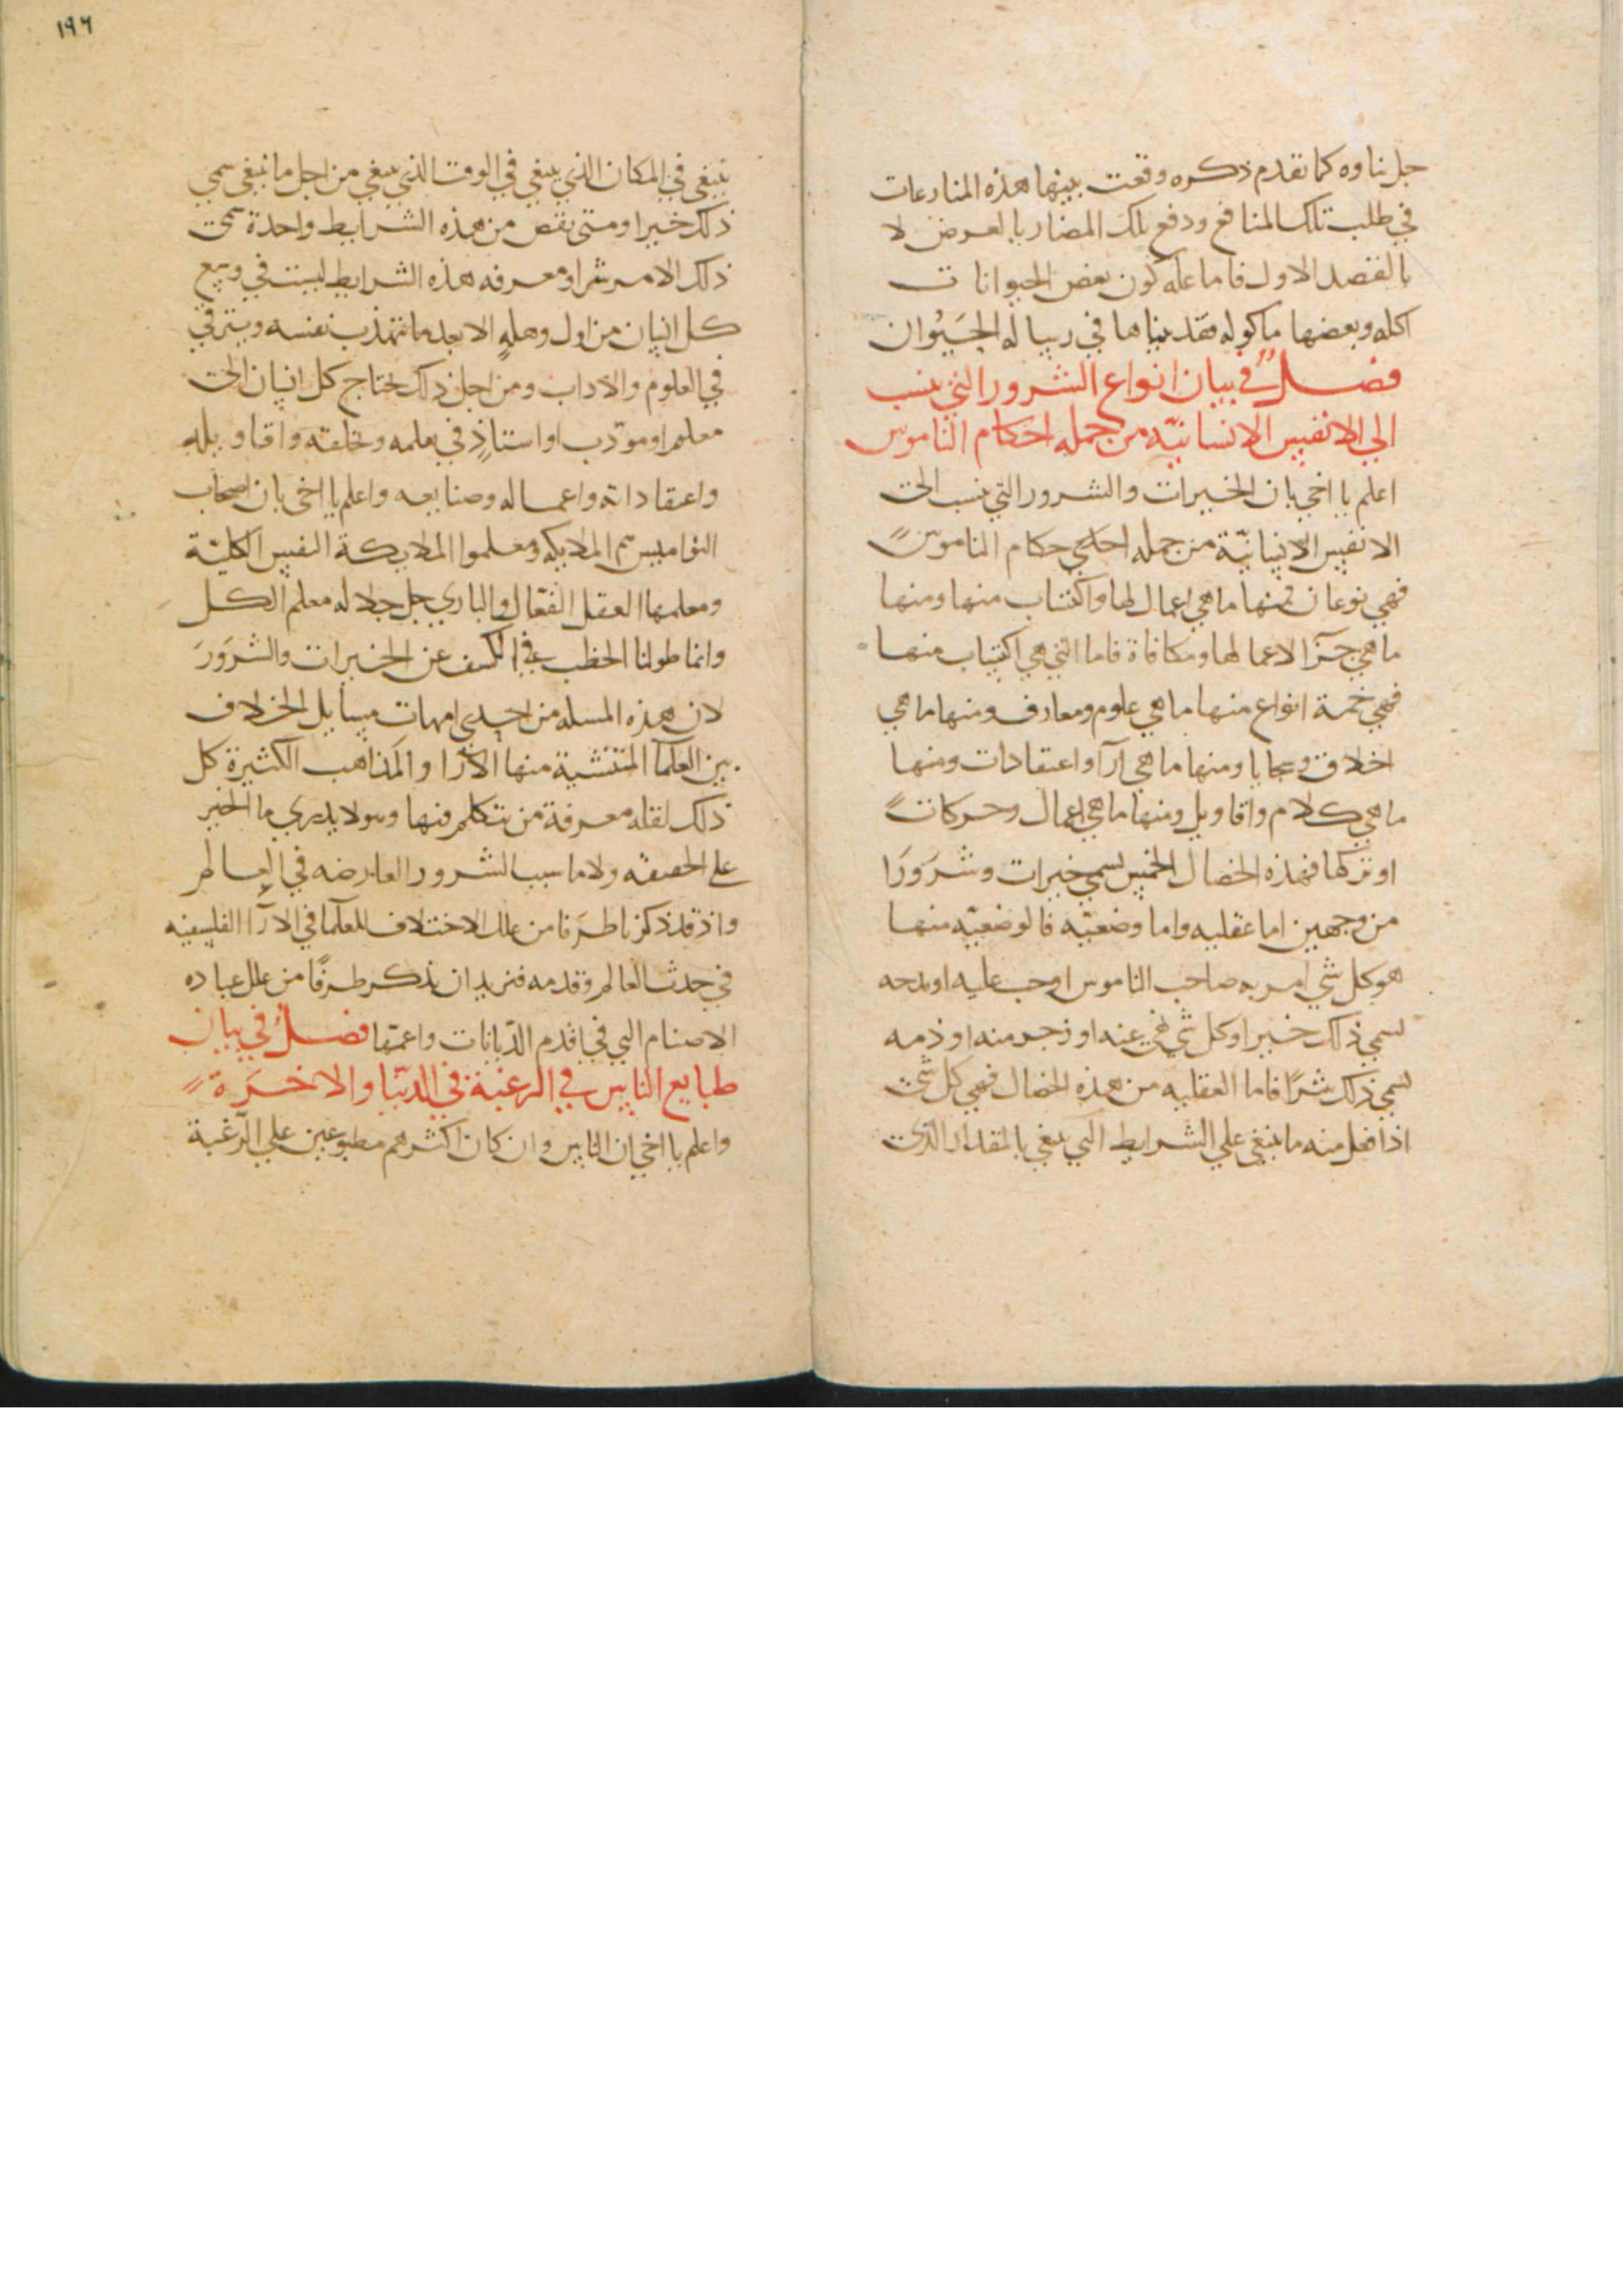 جل ثناوه كما تقدم ذكره وقعت بينها هذه المنازعات
في طلب تلك المنافع ودفع تلك المضار بالعرض لا
بالقصد الاول فاما علة كون بعض الحيوانات
اكله وبعضها ماكوله فقد بيناها في رسالة الحيوان
فصل في بيان انواع الشرور التي تنسب
الى الانفس الانسانية من جملة احكام الناموس
اعلم يا اخي بان الخيرات والشرور التي تنسب الى
الانفس الانسانية من جمله احكام الناموس
فهي نوعان فمنها ما هي اعمال لها واكتساب منها ومنها
ما هي جزا لاعمالها ومكافاة فاما التي هي اكتساب منها
فهي خمسة انواع منها ما هي علوم ومعارف ومنها ما هي
اخلاق وسجايا ومنها ما هي آرا واعتقادات ومنها
ما هي كلام واقاويل ومنها ما هي اعمال وحركات
او تركها فهذه الخصال الخمس تسمى خيرات وشرورا
من وجهين اما عقليه واما وضعيه فالوضعيه منها
هو كل شي امر به صاحب الناموس او حب عليه او مدحه
سمي ذلك خيرا وكل شي نهى عنه او زجر منه او ذمه
سمي ذلك شرا فاما العقليه من هذه الخصال فهي كل شي
اذا فعل منه ما ينبغي علي الشرايط التي ينبغي بالمقدار الذي
١٩٦
ينبغي في المكان الذي ينبغي في الوقت الذي ينبغي من اجل ما ينبغي سمي
ذلك خيرا ومتى نقص من هذه الشرايط واحدة سمي
ذلك الامر شرا ومعرفه هذه الشرايط ليست في وسع
كل انسان من اول وهلةٍ الا بعد ما تتهذب نفسه ويترقي
في العلوم والاداب ومن اجل ذلك يحتاج كل انسان الى
معلم او مودب او استاذٍ في تعلمه وتخلقه واقاويله
واعتقاداته واعماله وصنايعه واعلم يا اخي بان اصحاب
النواميس هم الملايكه ومعلموا الملايكة النفس الكلية
ومعلمها العقل الفعال والباري جل جلاله معلم الكل
وانما طولنا الخطب في الكشف عن الخيرات والشرور
لان هذه المسله من احدى امهات مسايل الخلاف
بين العلما المتنشية منها الارا والمذاهب الكثيرة كل
ذلك لقله معرفة من تتكلم فيها وهو لا يدري ما الخير
على الحقيقه ولا ما سبب الشرور العارضه في العالم
واذ قد ذكرنا طرفا من علل الاختلاف للعلما في الارآ الفلسفيه
في حدث العالم وقدمه فنريد ان نذكر طرفا من علل عباده
الاصنام التي في اقدم الديانات واعمها فصل في بيان
طبايع الناس في الرغبة في الدنيا والاخرة
واعلم يا اخي ان الناس وان كان اكثرهم مطبوعين علي الرغبة